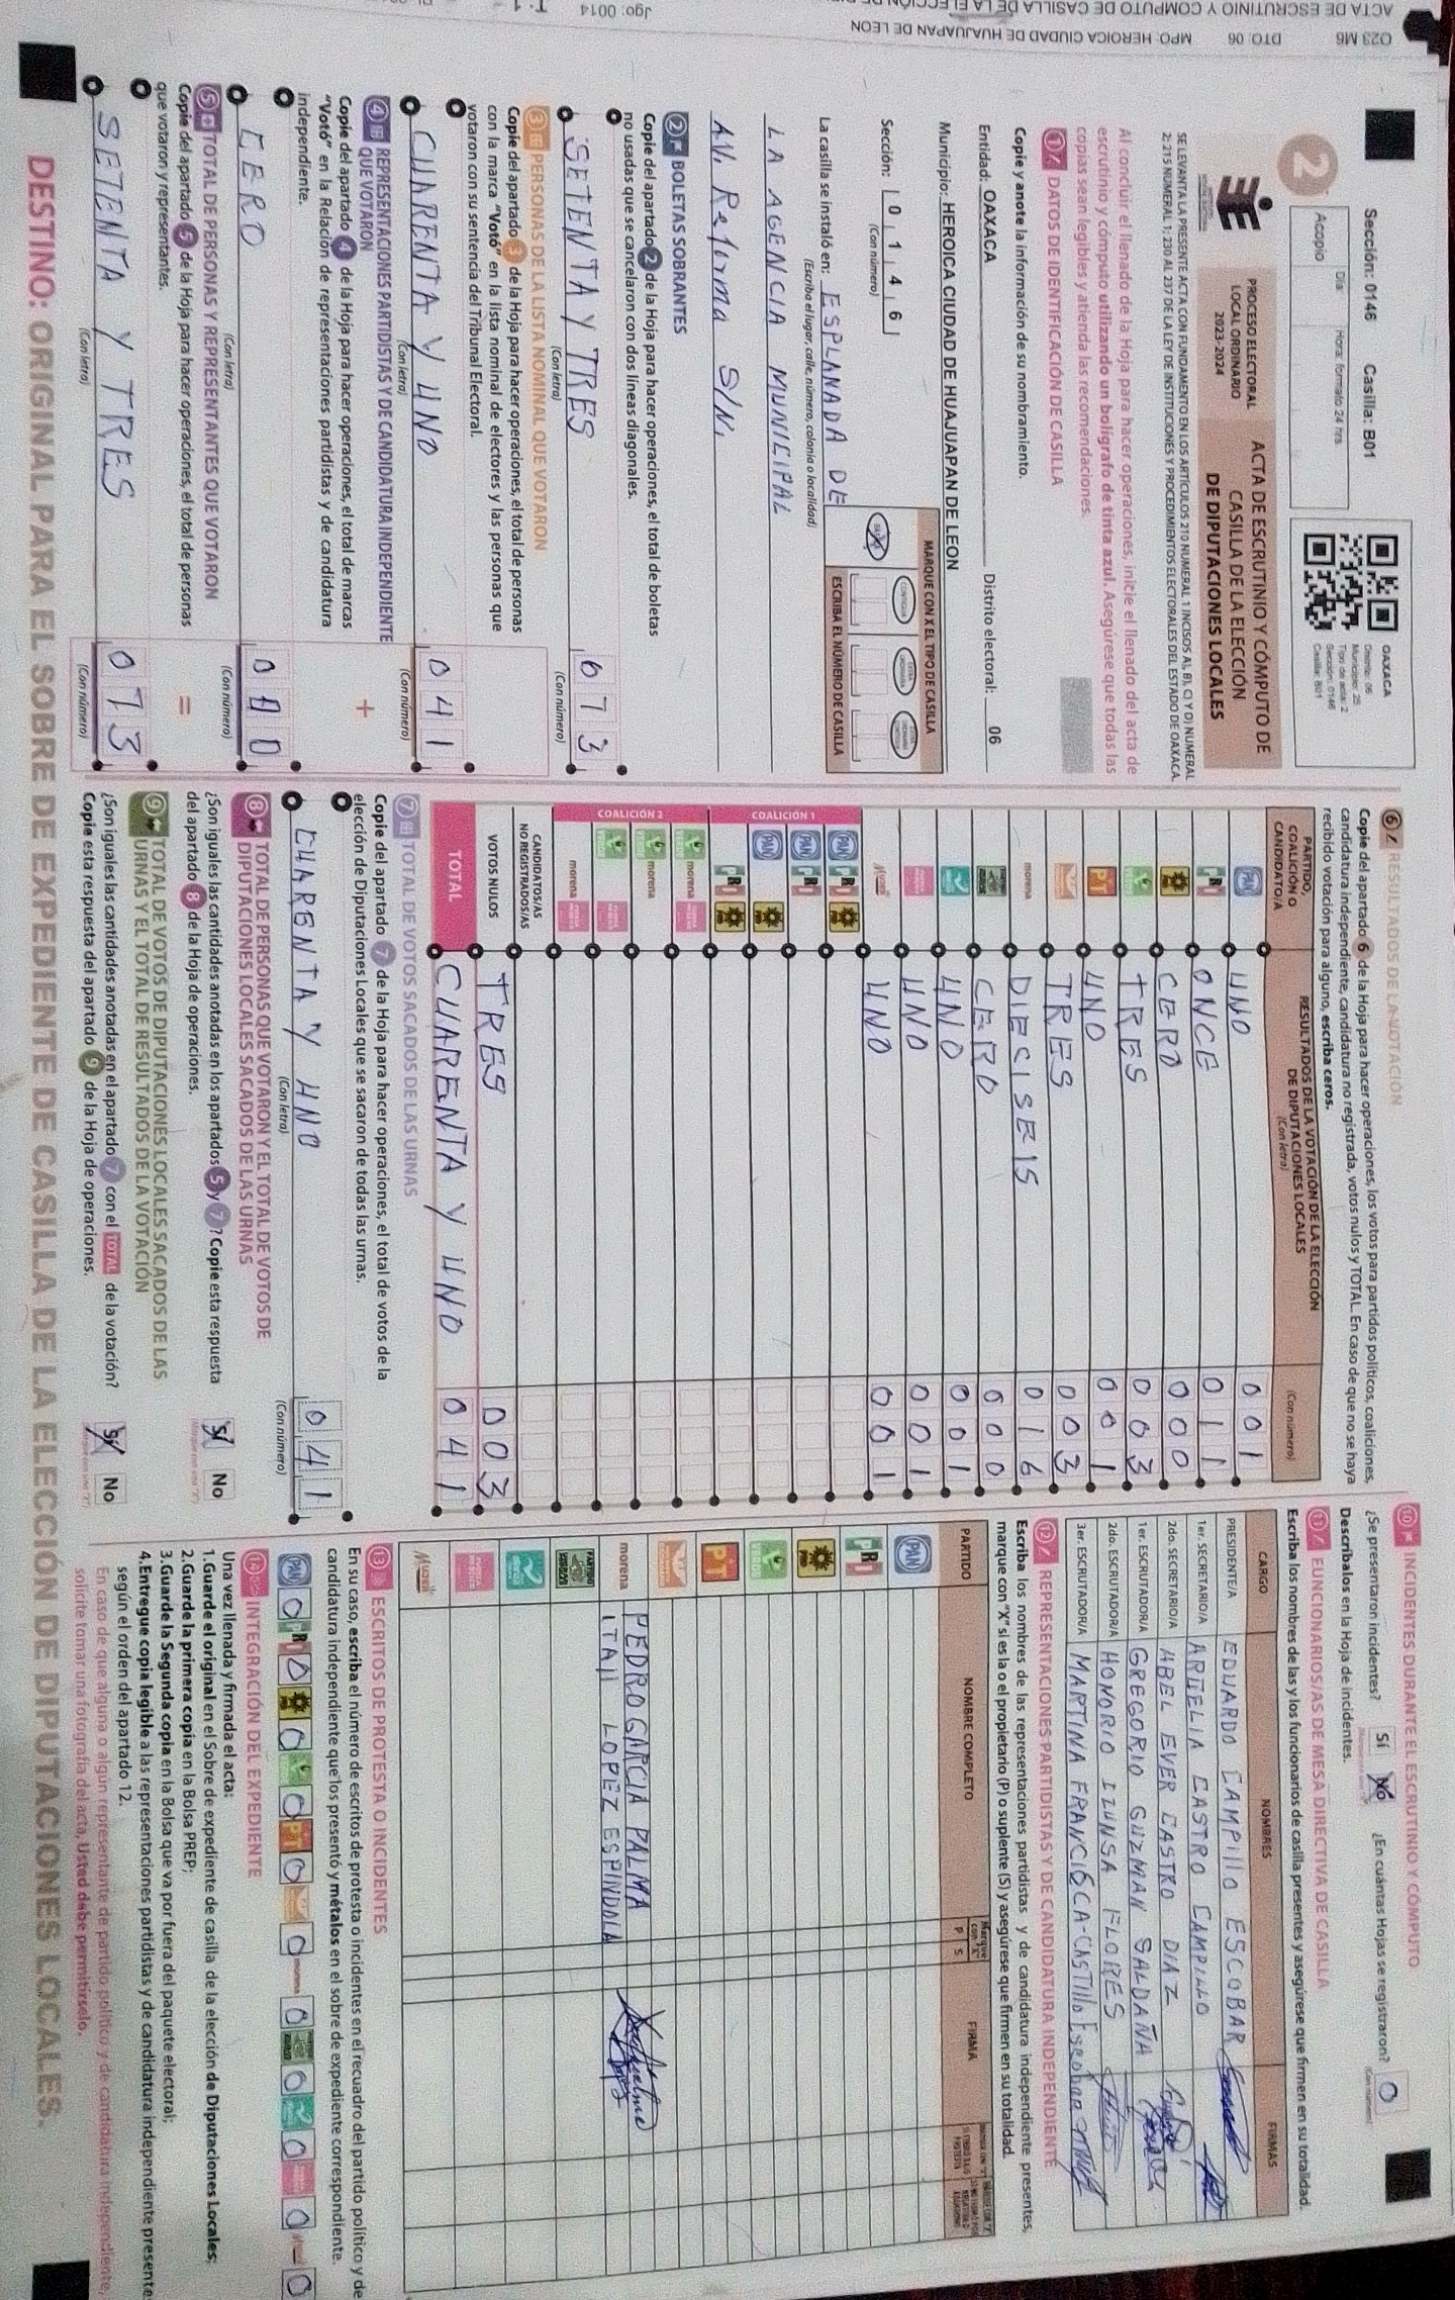 023 M6 DTO: 06 MPO: HEROICA CIUDAD DE HUAJUAPAN DE LEON
Jgo: 0014
Sección: 0146 Casilla: B01
Día Hora: formato 24 hrs.
Acopio
OAXACA
Distrito: 06
Municipio: 25
Tipo de acta: 2
Sección: 0146
Casilla: B01
2
PROCESO ELECTORAL
LOCAL ORDINARIO
2023-2024
ACTA DE ESCRUTINIO Y CÓMPUTO DE
CASILLA DE LA ELECCIÓN
DE DIPUTACIONES LOCALES
SE LEVANTA LA PRESENTE ACTA CON FUNDAMENTO EN LOS ARTÍCULOS 210 NUMERAL 1 INCISOS A), B), C) Y D) NUMERAL
2; 215 NUMERAL 1; 230 AL 237 DE LA LEY DE INSTITUCIONES Y PROCEDIMIENTOS ELECTORALES DEL ESTADO DE OAXACA.
Al concluir el llenado de la Hoja para hacer operaciones, inicie el llenado del acta de
escrutinio y cómputo utilizando un bolígrafo de tinta azul. Asegúrese que todas las
copias sean legibles y atienda las recomendaciones.
1 DATOS DE IDENTIFICACIÓN DE CASILLA
Copie y anote la información de su nombramiento.
Entidad: OAXACA Distrito electoral: 06
Municipio: HEROICA CIUDAD DE HUAJUAPAN DE LEON
Sección: 0 1 4 6
(Con número)
MARQUE CON X EL TIPO DE CASILLA
ESCRIBA EL NÚMERO DE CASILLA
La casilla se instaló en: ESPLANADA DE
(Escriba el lugar, calle, número, colonia o localidad)
LA AGENCIA MUNICIPAL
AV. Reforma S/N.
2 BOLETAS SOBRANTES
Copie del apartado 2 de la Hoja para hacer operaciones, el total de boletas
no usadas que se cancelaron con dos líneas diagonales.
SETENTA Y TRES 673
(Con letra) (Con número)
3 PERSONAS DE LA LISTA NOMINAL QUE VOTARON
Copie del apartado 3 de la Hoja para hacer operaciones, el total de personas
con la marca "Votó" en la lista nominal de electores y las personas que
votaron con su sentencia del Tribunal Electoral.
CUARENTA Y UNO 041
(Con letra) (Con número)
4 REPRESENTACIONES PARTIDISTAS Y DE CANDIDATURA INDEPENDIENTE
QUE VOTARON
+
Copie del apartado 4 de la Hoja para hacer operaciones, el total de marcas
"Votó" en la Relación de representaciones partidistas y de candidatura
independiente.
CERO 000
(Con letra) (Con número)
5 TOTAL DE PERSONAS Y REPRESENTANTES QUE VOTARON
=
Copie del apartado 5 de la Hoja para hacer operaciones, el total de personas
que votaron y representantes.
SETENTA Y TRES 073
(Con letra) (Con número)
6 RESULTADOS DE LA VOTACIÓN
Copie del apartado 6 de la Hoja para hacer operaciones, los votos para partidos políticos, coaliciones,
candidatura independiente, candidatura no registrada, votos nulos y TOTAL. En caso de que no se haya
recibido votación para alguno, escriba ceros.
PARTIDO,
COALICIÓN O
CANDIDATO/A
RESULTADOS DE LA VOTACIÓN DE LA ELECCIÓN
DE DIPUTACIONES LOCALES
(Con letra) (Con número)
PAN UNO 001
PRI ONCE 011
CERO 000
TRES 003
PT UNO 001
TRES 003
morena DIECISEIS 016
CERO 000
UNO 001
UNO 001
UNO 001
COALICIÓN 1
PAN PRI
PAN PRI
PAN
PRI
COALICIÓN 2
morena
morena
morena
CANDIDATOS/AS
NO REGISTRADOS/AS
VOTOS NULOS TRES 003
TOTAL CUARENTA Y UNO 041
7 TOTAL DE VOTOS SACADOS DE LAS URNAS
Copie del apartado 7 de la Hoja para hacer operaciones, el total de votos de la
elección de Diputaciones Locales que se sacaron de todas las urnas.
CUARENTA Y UNO 041
(Con letra) (Con número)
8 TOTAL DE PERSONAS QUE VOTARON Y EL TOTAL DE VOTOS DE
DIPUTACIONES LOCALES SACADOS DE LAS URNAS
¿Son iguales las cantidades anotadas en los apartados 5 y 7? Copie esta respuesta
del apartado 8 de la Hoja de operaciones.
Sí No
9 TOTAL DE VOTOS DE DIPUTACIONES LOCALES SACADOS DE LAS
URNAS Y EL TOTAL DE RESULTADOS DE LA VOTACIÓN
¿Son iguales las cantidades anotadas en el apartado 7 con el TOTAL de la votación?
Copie esta respuesta del apartado 9 de la Hoja de operaciones.
Sí No
10 INCIDENTES DURANTE EL ESCRUTINIO Y CÓMPUTO
¿Se presentaron incidentes? Sí No ¿En cuántas Hojas se registraron? 0
Descríbalos en la Hoja de incidentes.
11 FUNCIONARIOS/AS DE MESA DIRECTIVA DE CASILLA
Escriba los nombres de las y los funcionarios de casilla presentes y asegúrese que firmen en su totalidad.
CARGO NOMBRES FIRMAS
PRESIDENTE/A EDUARDO CAMPILLO ESCOBAR
1er. SECRETARIO/A ARDELIA CASTRO CAMPILLO
2do. SECRETARIO/A ABEL EVER CASTRO DIAZ
1er. ESCRUTADOR/A GREGORIO GUZMAN SALDAÑA
2do. ESCRUTADOR/A HONORIO IZUNSA FLORES
3er. ESCRUTADOR/A MARTINA FRANCISCA CASTILLO
12 REPRESENTACIONES PARTIDISTAS Y DE CANDIDATURA INDEPENDIENTE
Escriba los nombres de las representaciones partidistas y de candidatura independiente presentes,
marque con "X" si es la o el propietario (P) o suplente (S) y asegúrese que firmen en su totalidad.
PARTIDO NOMBRE COMPLETO P S FIRMA
PAN
PRI
PT
morena PEDRO GARCIA PALMA
ITAII LOPEZ ESPINDOLA
13 ESCRITOS DE PROTESTA O INCIDENTES
En su caso, escriba el número de escritos de protesta o incidentes en el recuadro del partido político y de
candidatura independiente que los presentó y métalos en el sobre de expediente correspondiente.
PAN 0 PRI 0 0 0 PT 0 0 morena 0 0 0 0 0
14 INTEGRACIÓN DEL EXPEDIENTE
Una vez llenada y firmada el acta:
1.Guarde el original en el Sobre de expediente de casilla de la elección de Diputaciones Locales;
2.Guarde la primera copia en la Bolsa PREP;
3.Guarde la Segunda copia en la Bolsa que va por fuera del paquete electoral;
4.Entregue copia legible a las representaciones partidistas y de candidatura independiente presente
según el orden del apartado 12.
En caso de que alguna o algún representante de partido político y de candidatura independiente,
solicite tomar una fotografía del acta, Usted debe permitírselo.
DESTINO: ORIGINAL PARA EL SOBRE DE EXPEDIENTE DE CASILLA DE LA ELECCIÓN DE DIPUTACIONES LOCALES.